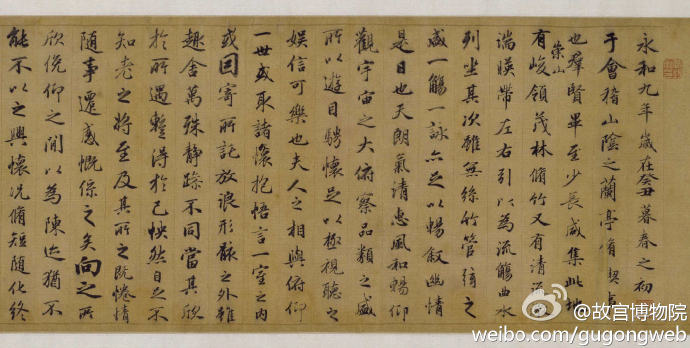 永和九年歲在癸丑暮春之初
于會稽山陰之蘭亭脩禊事
也羣賢畢至少長咸集此地
有崇山峻領茂林脩竹又有清流
湍暎帶左右引以為流觴曲水
列坐其次雖無絲竹管弦之
盛一觴一詠亦足以暢敘幽情
是日也天朗氣清惠風和暢仰
觀宇宙之大俯察品類之盛
所以遊目騁懷足以極視聽之
娛信可樂也夫人之相與俯仰
一世或取諸懷抱悟言一室之內
或因寄所託放浪形骸之外雖
趣舍萬殊靜躁不同當其欣
於所遇暫得於己怏然自足不
知老之將至及其所之既惓情
隨事遷感慨係之矣向之所
欣俛仰之間以為陳迹猶不
能不以之興懷況脩短隨化終
@故宫博物院
weibo.com/gugongweb